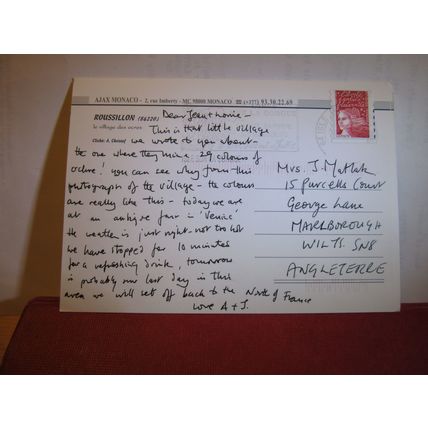 AJAX MONACO - 2, rue Imberty - MC 98000 MONACO ☎ (+377) 93.30.22.69
ROUSSILLON (84220)
le village des ocres
Cliché: A. Christof
Dear Jean &
This is that little village
we wrote to you about -
the one where they mine 29 colours of
ochre! You can see why from this
photograph of the village - the colours
are really like this - today we are
at an antique fair in 'Venice'
the weather is just right - not too hot
we have stopped for 10 minutes
for a refreshing drink, tomorrow
is probably our last day in this
area we will set off back to the North of France
Love A + J.
Mrs. J.
15 Purcells Court
George Lane
MARLBOROUGH
WILTS. SN8
ANGLETERRE